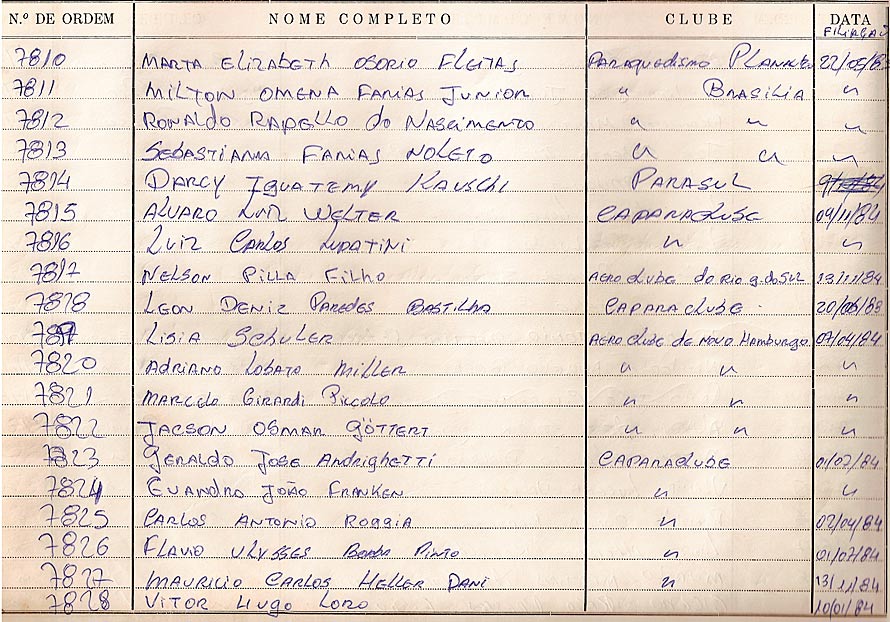 N.º DE ORDEM NOME COMPLETO CLUBE DATA
FILIAÇÃO
7810 MARTA ELIZABETH OSORIO FLEITAS PARAQUEDISMO 22/05/8
7811 MILTON OMENA FARIAS JUNIOR " BRASILIA "
7812 RONALDO RADELLO do NASCIMENTO " " "
7813 SEBASTIANA FARIAS NOLETO " " "
7814 DARCY IGUATEMY KAUSCHI PARASUL
7815 ALVARO LUIZ WELTER CAPARACLUBE 09/11/84
7816 LUIZ CARLOS LUPATINI " "
7817 NELSON PILLA FILHO AEROCLUBE do RIO g. do SUL 13/11/84
7818 LEON DENIZ PAREDES BASTILHA CAPARACLUBE
7819 LISIA SCHULER AEROCLUBE de NOVO HAMBURGO 07/04/84
7820 ADRIANO LOBATO MILLER " " "
7821 MARCELO GIRARDI PICCOLO " " "
7822 JACSON OSMAR GÖTTERT " " "
7823 GERALDO JOSE ANDRIGHETTI CAPARACLUBE 01/07/84
7824 EVANDRO JOÃO FRANKEN " "
7825 CARLOS ANTONIO ROGGIA " 02/04/84
7826 FLAVIO ULYSSES PINTO " 01/07/84
7827 MAURICIO CARLOS HELLER DANI " 13/11/84
7828 VITOR HUGO LORO 10/01/84